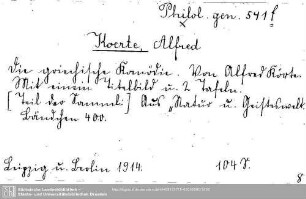 Philol. gen. 541 f
Koerte, Alfred
Die griechische Komödie. Von Alfred Körte.
Mit einem Titelbild u. 2 Tafeln.
[Teil der Samml.:] Aus „Natur u. Geisteswelt.
Bändchen 400.
Leipzig u. Berlin 1914. 104 S.
8